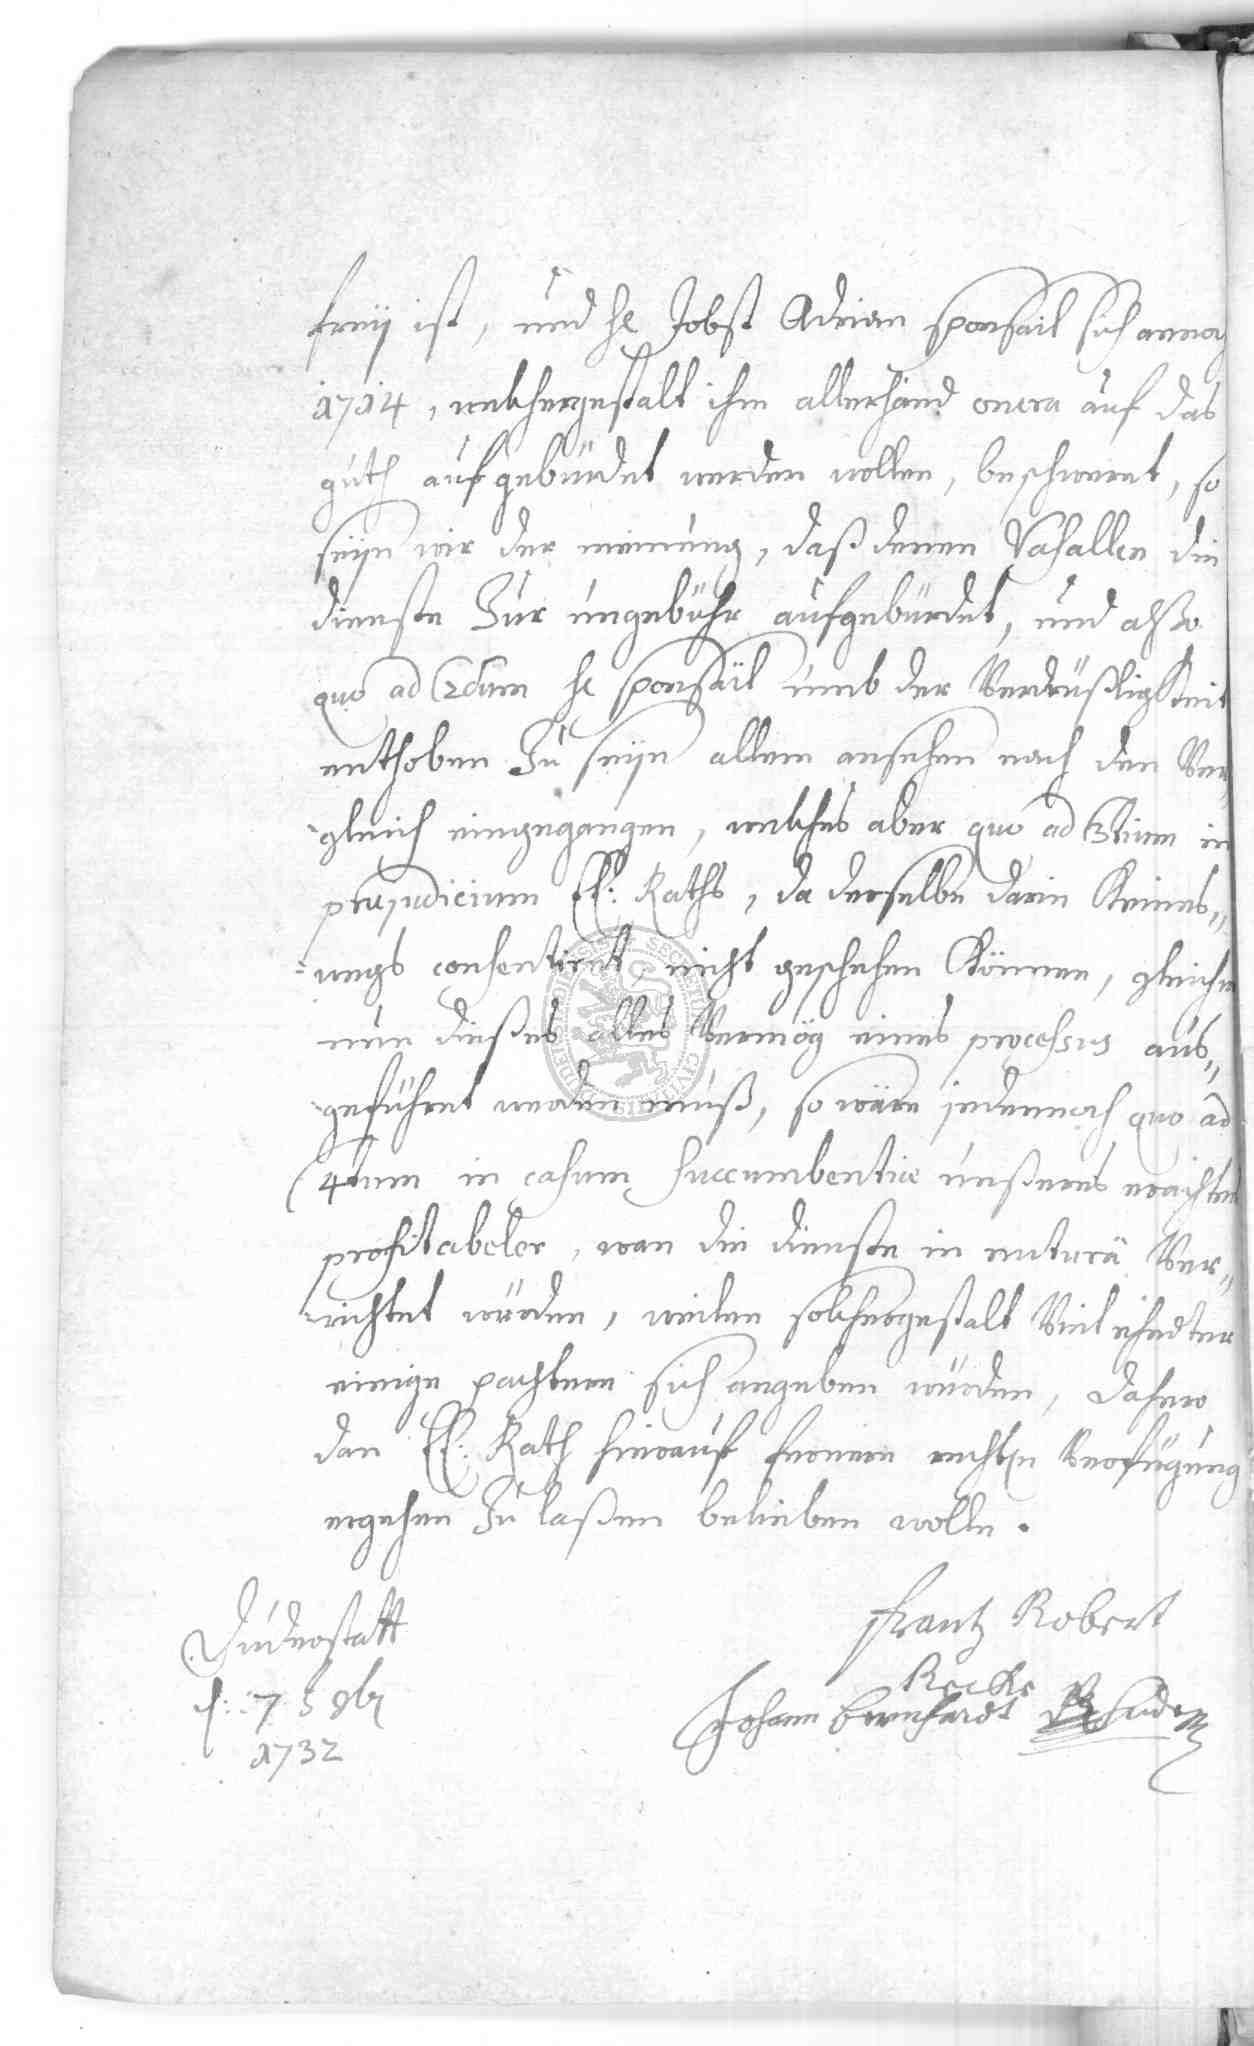 freÿ ist, und H. Jobst Adrian Sponsail sich annoch
1714, welchergestalt ihm allerhand onera auf das
guth aufgebürdet werden wollen, beschweret, so
seÿn wir der meinung, daß denen Vasallen die
dienste Zur ungebühr aufgebürdet, und also
quo ad (2dum H. Sponsail umb der Verdrüßligkeit
enthoben Zu seÿn allem ansehen nach den Ver„
gleich eingegangen, welches aber quo ad (3tium in
præjudicium Ef: Raths, da derselbe darin Keines„
wegs consentiret nicht geschehen Können, gleichwie
nun dießes alles Vermög eines processus aus„
geführet werden muß, so wäre jedennoch quo ad
(4tum in casum succumbentiæ unßeres erachtens
profitabeler, wan die dienste in naturâ Ver„
richtet würden, weilen solchergestalt Viel ehedter
einige pachtere sich angeben würden, dahero
dan Ef: Rath hierauf fernere rechtl. Verfügung
ergehen Zu laßen belieben wolle.
Duderstatt
d: 7 8br
1732
Frantz Robert
Recke
Johann Bernhardt
SECRETUM CIVI